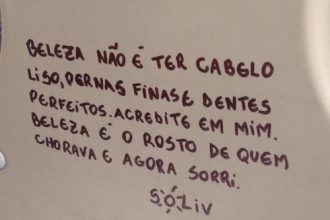 BELEZA NÃO É TER CABELO
LISO, PERNAS FINAS E DENTES
PERFEITOS. ACREDITE EM MIM.
BELEZA É O ROSTO DE QUEM
CHORAVA E AGORA SORRI.
SÓLIV